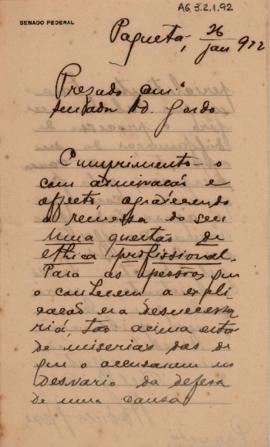 AG 3.2.1.92
SENADO FEDERAL
Paquetá, 26
jan 912
Prezado am.º
senador Ad. Gordo
Cumprimento-o
com admiração e
affecto, agradecendo
a remessa do seu
Uma questão de
ethica profissional.
Para as pessôas que
o conhecem a expli-
cação era desnecessa-
ria, tão acima está
de miserias das de
que o accusaram no
desvario da defesa
de uma causa